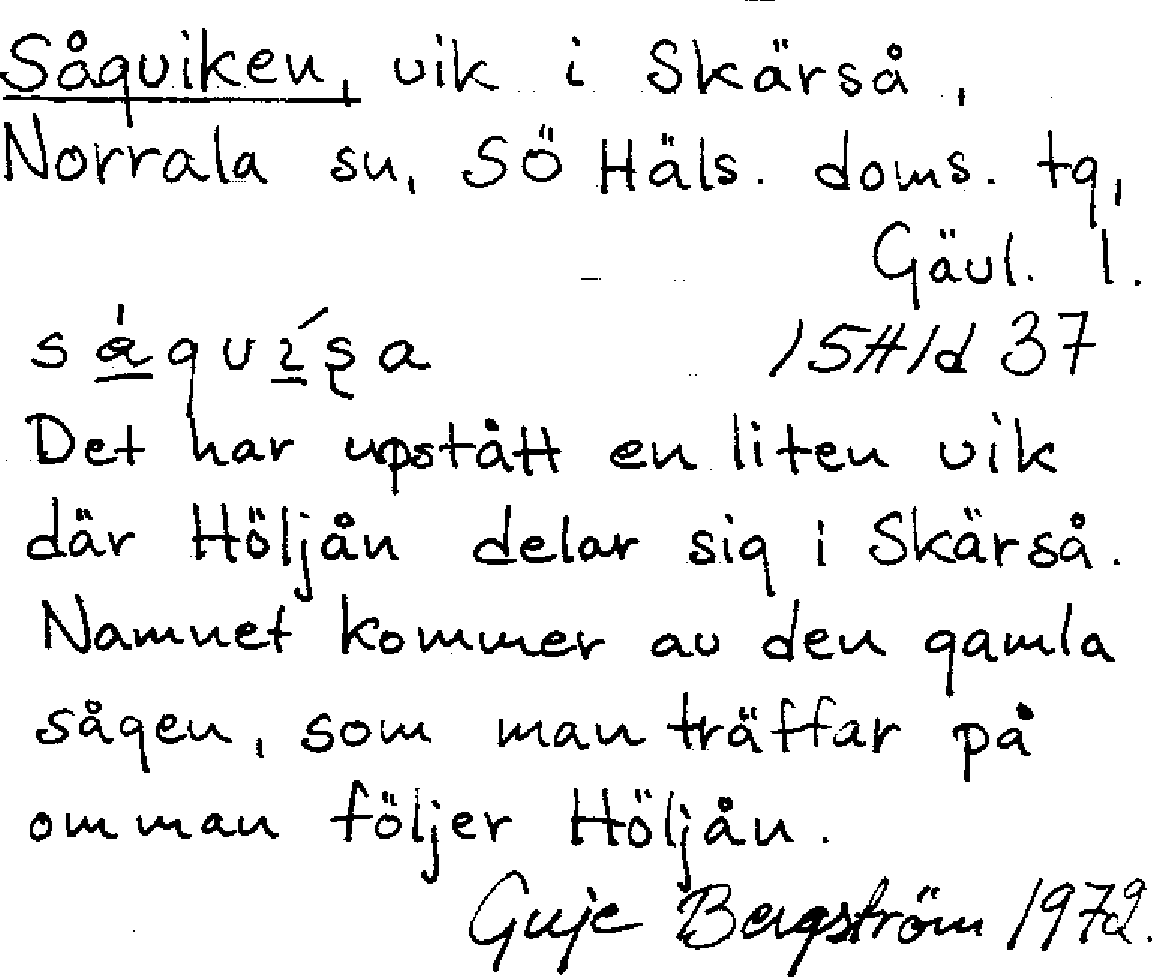 Sågviken, vik i Skärså,
Norrala sn, SÖ Häls. doms. tg,
Gävl. l.
15H1d 37
Det har upstått en liten vik
där Höljån delar sig i Skärså.
Namnet kommer av den gamla
sågen, som man träffar på
om man följer Höljån.
Guje Bergström 1972.